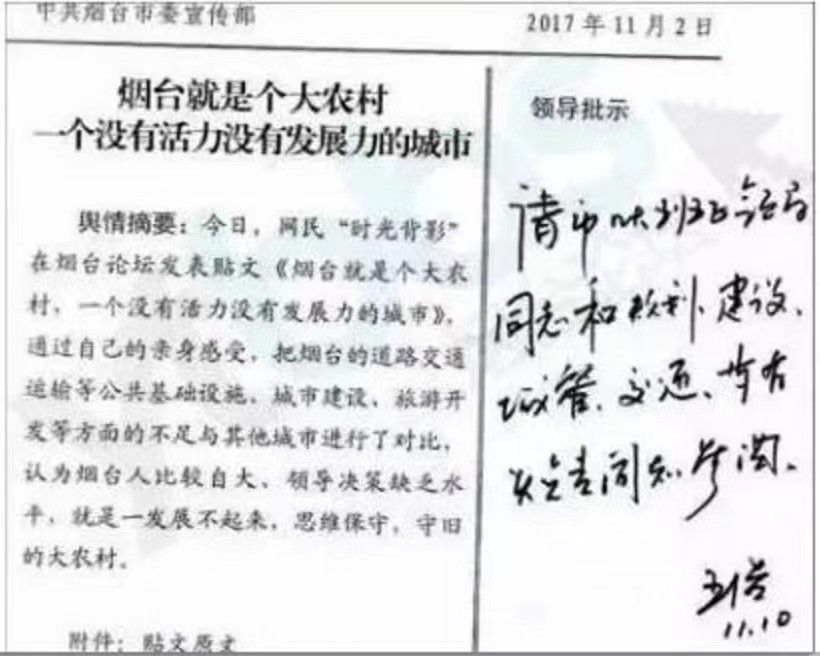 中共烟台市委宣传部
2017年11月2日
烟台就是个大农村
一个没有活力没有发展力的城市
舆情摘要：今日，网民“时光背影”
在烟台论坛发表贴文《烟台就是个大农
村，一个没有活力没有发展力的城市》，
通过自己的亲身感受，把烟台的道路交通
运输等公共基础设施、城市建设、旅游开
发等方面的不足与其他城市进行了对比，
认为烟台人比较自大、领导决策缺乏水
平，就是一发展不起来，思维保守，守旧
的大农村。
附件：贴文原文
领导批示
请市
同志和规划、建设、
城管、交通、
同志参阅。
11.10